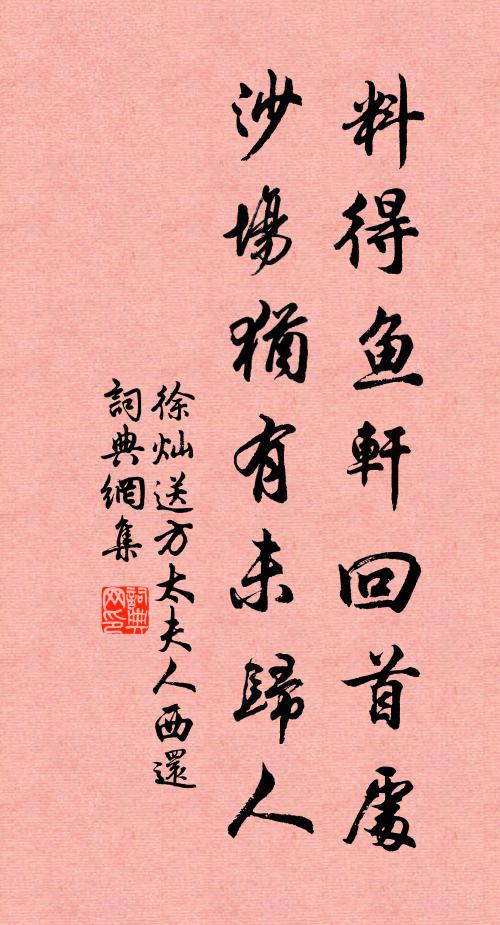 料得鱼軒回首處
沙場猶有未歸人
徐灿送方太夫人西還
詞典網集
詞典
网印